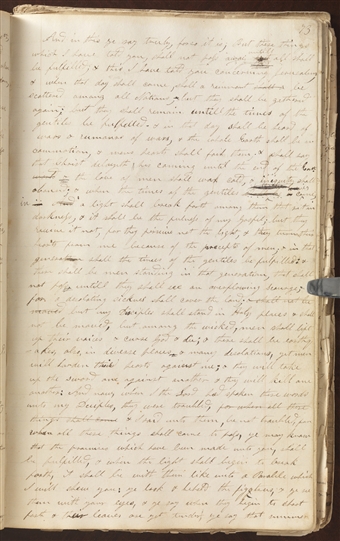 73
And in this ye say truly, for so it is; But these things
which I have told you, shall not pass away, until all shall
be fulfilled; & this I have told you concerning Jerusalem
& when that day shall come, shall a remnant be
scattered among all nations, but they shall be gathered
again; but they shall remain until the times of the
gentiles be fulfilled & in that day shall be heard of
wars & rumours of wars, & the whole Earth shall be in
commotion, & mens hearts shall fail them, & shall say
that Christ delayeth his coming until the end of the Earth
& the love of men shall wax cold, & iniquity shall
abound; & when the times of the gentiles is come
in a light shall break forth among them that sit in
darkness, & it shall be the fulness of my gospel; but they
receive it not, for they perceive not the light, & they turn their
hearts from me because of the precepts of men, & in that
generation shall the times of the gentiles be fulfilled; &
there shall be men standing in that generation, that shall
not pass, untill they shall see an overflowing scourge,
for a desolating sickness shall cover the land;
but my Disciples shall stand in Holy places & shall
not be moved, but among the wicked, men shall lift
up their voices & curse God & die; & there shall be earthq
uakes, also, in diverse places, & many desolations, yet men
will harden their hearts against me; & they will take
up the sword one against another & they will kill one
another; And now, when I the Lord had spoken these words
unto my Disciples, they were troubled,
& I said unto them, be not troubled, for
when all these things shall come to pass, ye may know
that the promises which have been made unto you, shall
be fulfilled, & when the light shall begin to break
forth, it shall be with them like unto a Parable which
I will shew you; ye look & behold the fig trees, & ye see
them with your eyes, & ye say when they begin to shoot
forth & their leaves are yet tender, ye say that summer